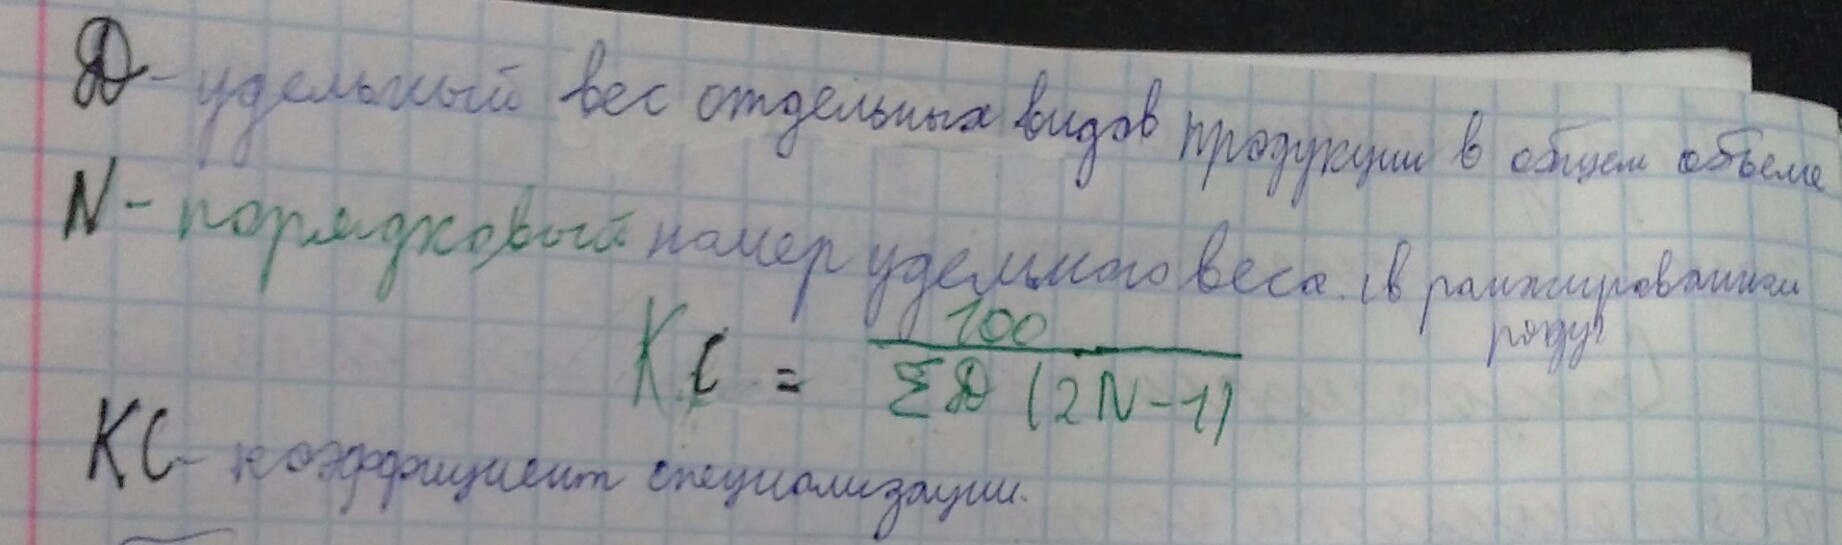 Д - удельный вес отдельных видов продукции в общем объеме
N - порядковый номер удельного веса. (в ранжированном
ряду)
КС = 100 / ΣД (2N-1)
КС - коэффициент специализации.